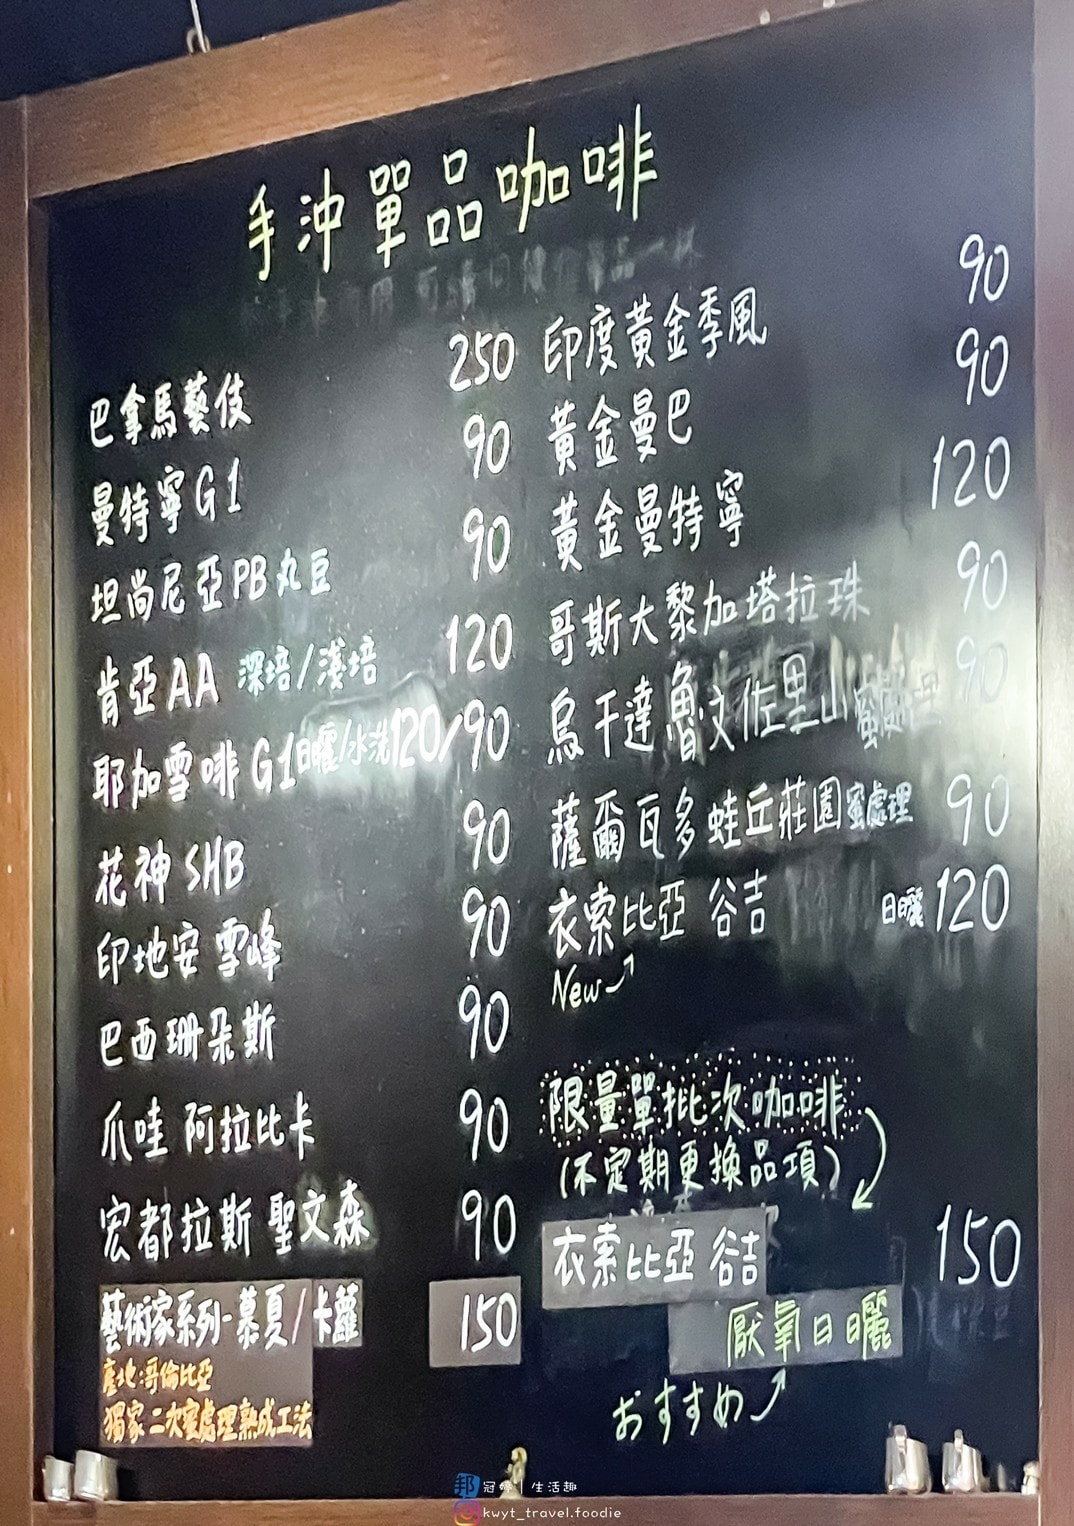 手沖單品咖啡
巴拿馬藝伎 250
曼特寧G1 90
坦尚尼亞PB丸豆 90
肯亞AA 深培/淺培 120
耶加雪啡G1日曬/水洗120/90
花神SHB 90
印地安雪峰 90
巴西珊朵斯 90
爪哇 阿拉比卡 90
宏都拉斯 聖文森 90
藝術家系列-慕夏/卡蘿 150
產地:哥倫比亞
獨家二次蜜處理熟成工法
印度黃金季風 90
黃金曼巴 90
黃金曼特寧 120
哥斯大黎加塔拉珠 90
烏干達魯文佐里山 90
薩爾瓦多蛙丘莊園蜜處理 90
衣索比亞 谷吉 日曬120
New
限量單批次咖啡
(不定期更換品項)
衣索比亞 谷吉 150
厭氧日曬
おすすめ
邦 冠 | 生活趣
kwyt_travel.foodie